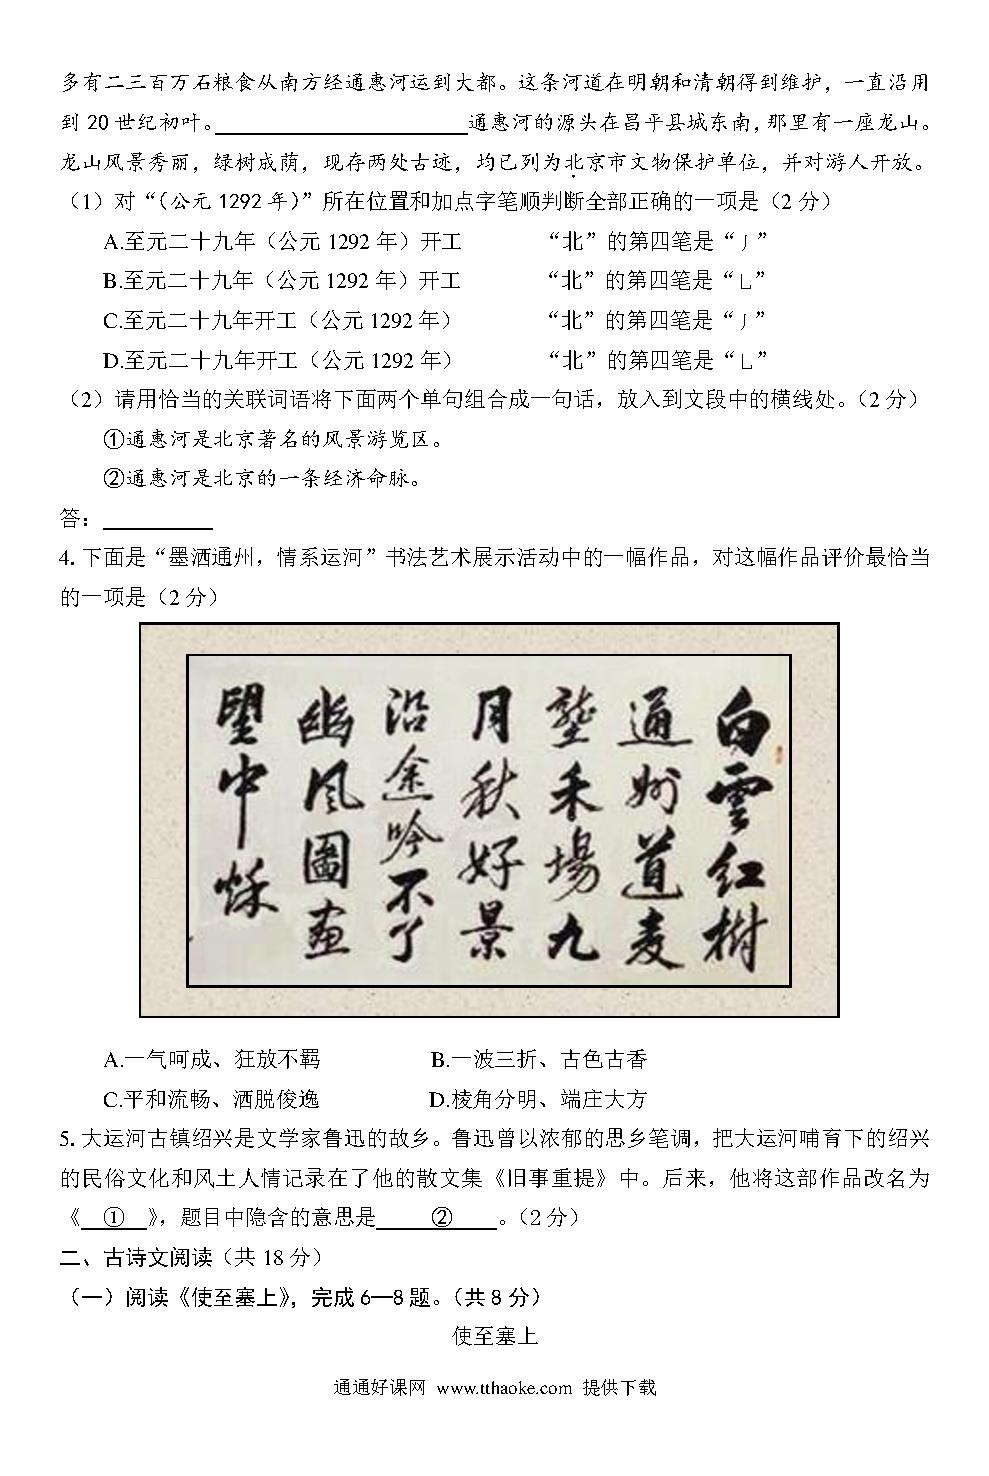 多有二三百万石粮食从南方经通惠河运到大都。这条河道在明朝和清朝得到维护，一直沿用
到 20 世纪初叶。通惠河的源头在昌平县城东南，那里有一座龙山。
龙山风景秀丽，绿树成荫，现存两处古迹，均已列为北京市文物保护单位，并对游人开放。
（1）对“（公元 1292 年）”所在位置和加点字笔顺判断全部正确的一项是（2 分）
A.至元二十九年（公元 1292 年）开工 “北”的第四笔是“丿”
B.至元二十九年（公元 1292 年）开工 “北”的第四笔是“乚”
C.至元二十九年开工（公元 1292 年） “北”的第四笔是“丿”
D.至元二十九年开工（公元 1292 年） “北”的第四笔是“乚”
（2）请用恰当的关联词语将下面两个单句组合成一句话，放入到文段中的横线处。（2 分）
①通惠河是北京著名的风景游览区。
②通惠河是北京的一条经济命脉。
答：
4. 下面是“墨洒通州，情系运河”书法艺术展示活动中的一幅作品，对这幅作品评价最恰当
的一项是（2 分）
白雲红樹
通州道麦
壟禾場九
月秋好景
沿途吟不了
豳风圖畫
望中稣
A.一气呵成、狂放不羁 B.一波三折、古色古香
C.平和流畅、洒脱俊逸 D.棱角分明、端庄大方
5. 大运河古镇绍兴是文学家鲁迅的故乡。鲁迅曾以浓郁的思乡笔调，把大运河哺育下的绍兴
的民俗文化和风土人情记录在了他的散文集《旧事重提》中。后来，他将这部作品改名为
《 ① 》，题目中隐含的意思是 ② 。（2 分）
二、古诗文阅读（共 18 分）
（一）阅读《使至塞上》，完成 6—8 题。（共 8 分）
使至塞上
通通好课网 www.tthaoke.com 提供下载